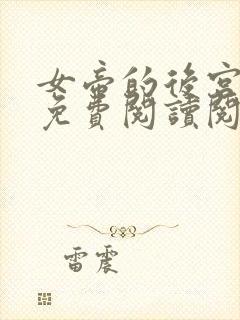 女帝的後宮
免費閱讀閱
雷震